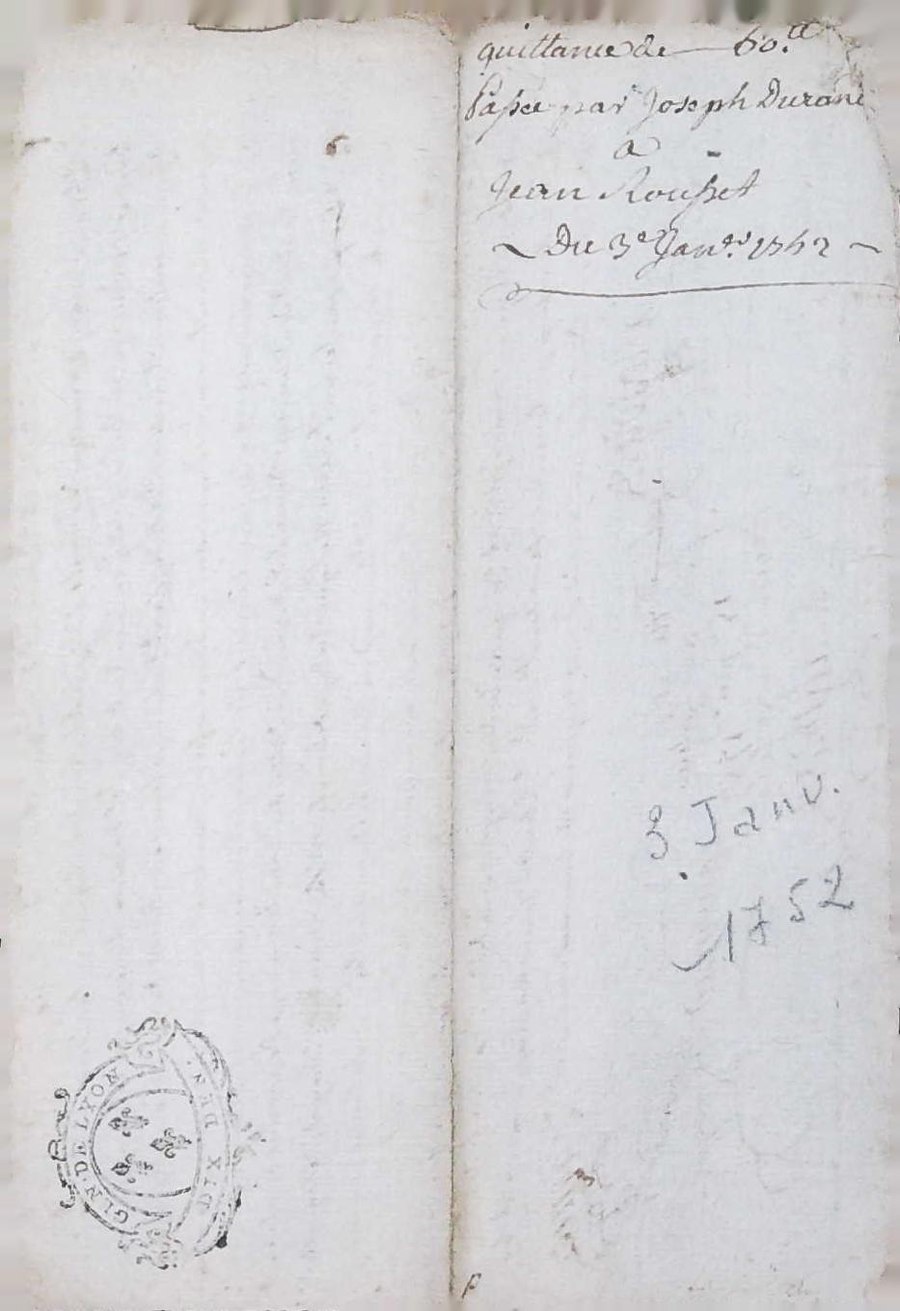 quittance de — 60.tt
Passée par Joseph Durand
a
Jean Rousset
~ Du 3e Janer. 1752 ~
3 Janv.
1752
GEN. DE LYON
DIX DEN.